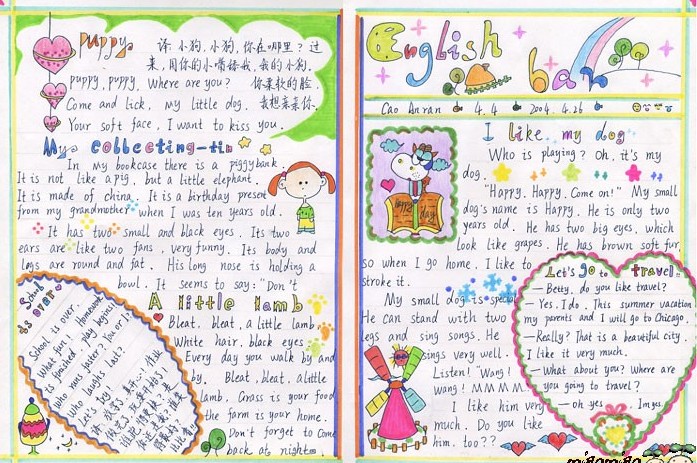 Puppy
译:小狗,小狗,你在哪里?过
来,用你的小嘴舔我,我的小狗.
puppy, puppy. Where are you? 你柔软的脸,
Come and lick, my little dog. 我想亲亲你.
Your soft face, I want to kiss you.
My collecting-tin
In my bookcase there is a piggybank.
It is not like a pig, but a little elephant.
It is made of china. It is a birthday present
from my grandmother when I was ten years old.
It has two small and black eyes. Its two
ears are like two fans, very funny. Its body and
legs are round and fat. His long nose is holding a
bowl. It seems to say: "Don't
School is over.
School is over.
What fun! homework
is finished, play begins.
Who runs faster? You or I?
Who laughs last?
Let's try
A little lamb
Bleat, bleat, a little lamb,
White hair, black eyes.
Every day you walk by and
by. Bleat, bleat, a little
lamb, Grass is your food
the farm is your home.
Don't forget to come
back at night.
English
ban
Cao Anran 4.4 2004.4.26
I like my dog
Who is playing? Oh, it's my
dog.
"Happy, Happy, Come on!" My small
dog's name is Happy. He is only two
years old. He has two big eyes, which
look like grapes. He has brown soft fur,
so when I go home, I like to
stroke it.
My small dog is special.
He can stand with two
legs and sing songs. He
sings very well.
Listen! "Wang!
wang! MMMMM"
I like him very
much. Do you like
him, too??
happy day
Let's go to travel
— Betty, do you like travel?
— Yes, I do. This summer vacation
my parents and I will go to Chicago.
— Really? That is a beautiful city.
I like it very much.
— What about you? Where are
you going to travel?
— oh yes. I'm yes.
miaomiao